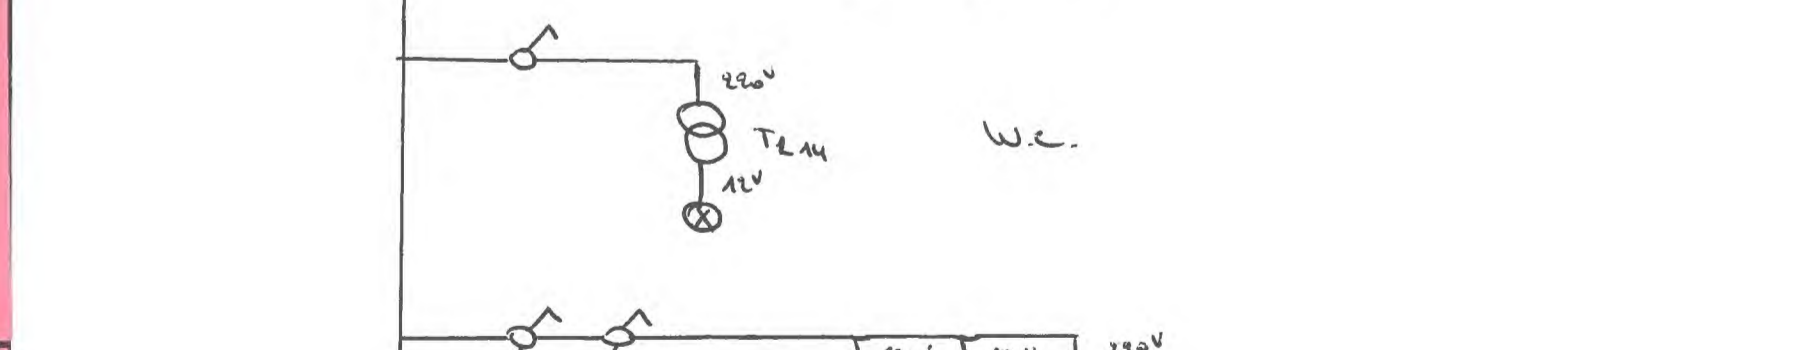 220V
TR 14
W.C.
12V
220V